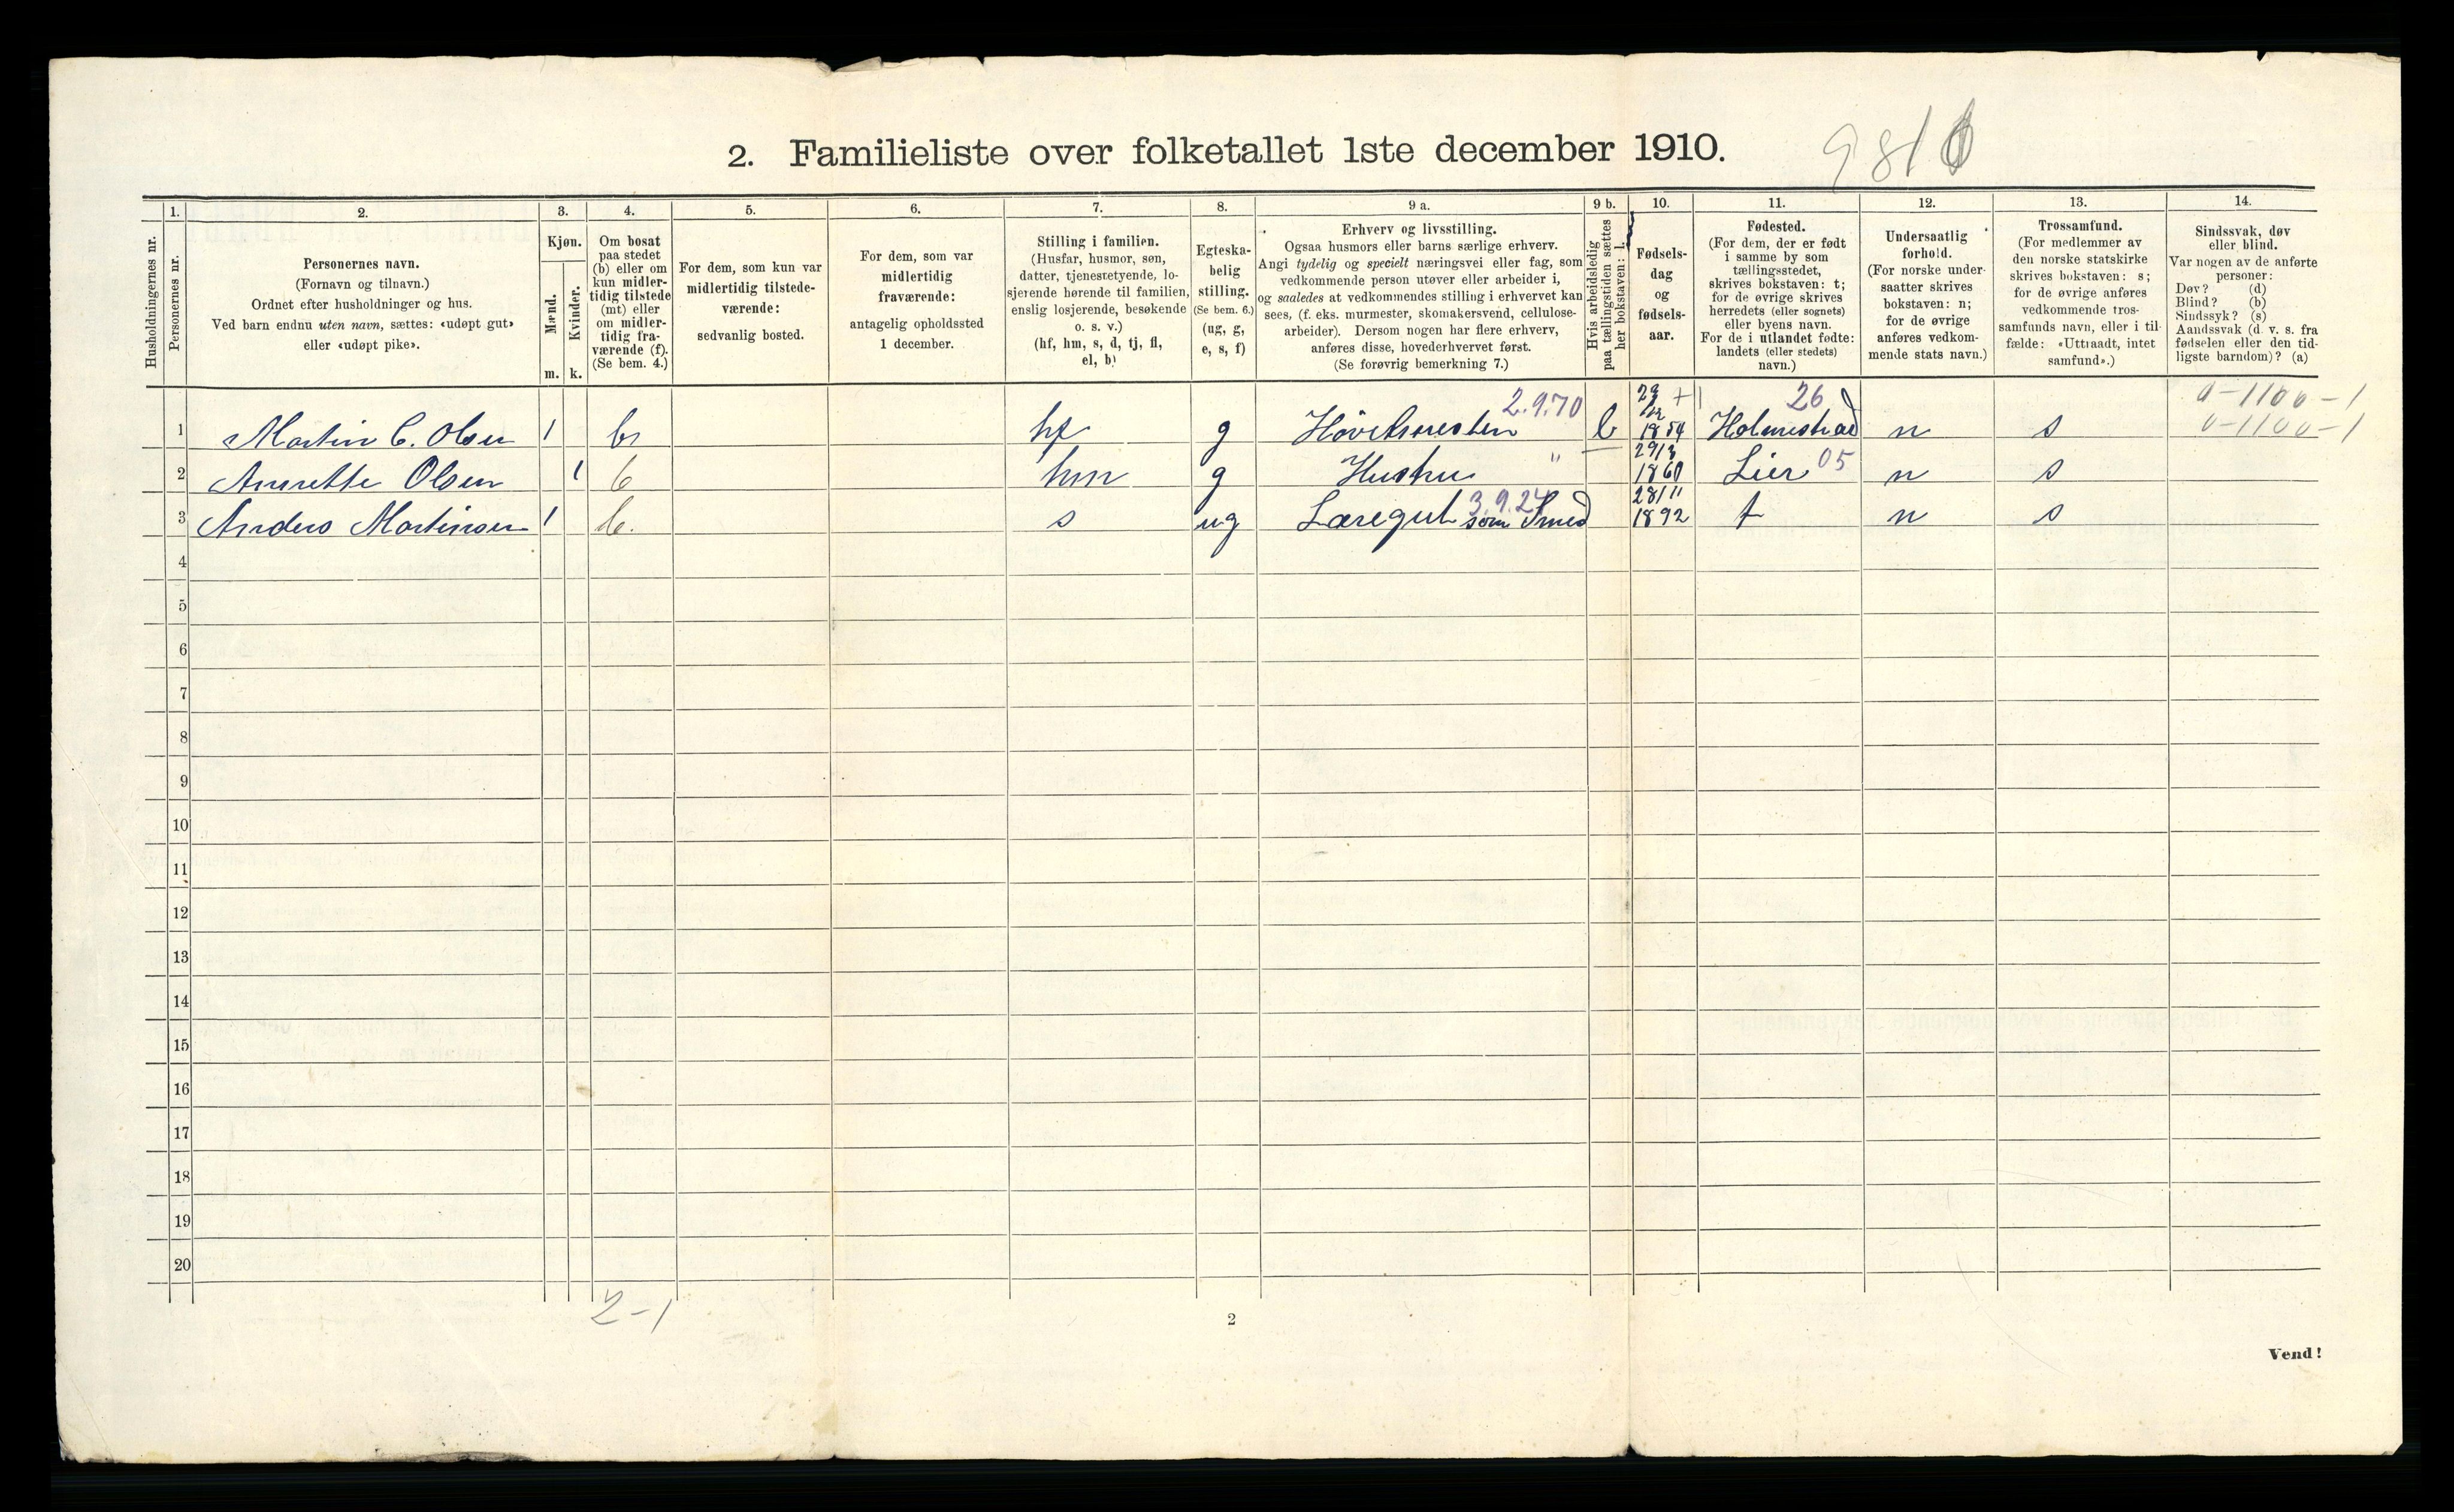 2. Familieliste over folketallet 1ste december 1910.
Husholdningernes nr.
1.
Personernes nr.
2.
Personernes navn.
(Fornavn og tilnavn.)
Ordnet efter husholdninger og hus.
Ved barn endnu uten navn, sættes: «udøpt gut»
eller «udøpt pike».
3.
Kjøn.
Mænd.
Kvinder.
m. k.
4.
Om bosat
paa stedet
(b) eller om
kun midler-
tidig tilstede
(mt) eller
om midler-
tidig fra-
værende (f).
(Se bem. 4.)
5.
For dem, som kun var
midlertidig tilstede-
værende:
sedvanlig bosted.
6.
For dem, som var
midlertidig
fraværende:
antagelig opholdssted
1 december.
7.
Stilling i familien.
(Husfar, husmor, søn,
datter, tjenestetyende, lo-
sjerende hørende til familien,
enslig losjerende, besøkende
o. s. v.)
(hf, hm, s, d, tj, fl,
el, b)
8.
Egteska-
belig
stilling.
(Se bem. 6.)
(ug, g,
e, s, f)
9 a.
Erhverv og livsstilling.
Ogsaa husmors eller barns særlige erhverv.
Angi tydelig og specielt næringsvei eller fag, som
vedkommende person utøver eller arbeider i,
og saaledes at vedkommendes stilling i erhvervet kan
sees, (f. eks. murmester, skomakersvend, cellulose-
arbeider). Dersom nogen har flere erhverv,
anføres disse, hovederhvervet først.
(Se forøvrig bemerkning 7.)
9 b.
Hvis arbeidsledig
paa tællingstiden sættes
her bokstaven: l.
10.
Fødsels-
dag
og
fødsels-
aar.
11.
Fødested.
(For dem, der er født
i samme by som
tællingsstedet,
skrives bokstaven: t;
for de øvrige skrives
herredets (eller sognets)
eller byens navn.
For de i utlandet fødte:
landets (eller stedets)
navn.)
12.
Undersaatlig
forhold.
(For norske under-
saatter skrives
bokstaven: n;
for de øvrige
anføres vedkom-
mende stats navn.)
13.
Trossamfund.
(For medlemmer av
den norske statskirke
skrives bokstaven: s;
for de øvrige anføres
vedkommende tros-
samfunds navn, eller i til-
fælde: «Uttraadt, intet
samfund».)
14.
Sindssvak, døv
eller blind.
Var nogen av de anførte
personer:
Døv? (d)
Blind? (b)
Sindssyk? (s)
Aandssvak (d. v. s. fra
fødselen eller den tid-
ligste barndom)? (a)
1 Martin C. Olsen 1 b hf g 2.9.70 l 1854 Holmestrad 26 n s 0-1100-1
0-1100-1
2 Annette Olsen 1 b hm g Hustru " 29/3 1860 Lier 05 n s
3 Anders Martinsen 1 b. s ug Læregut som Smed 3.9.24 28/11 1892 t n s
4
5
6
7
8
9
10
11
12
13
14
15
16
17
18
19
20
2-1
2
Vend!